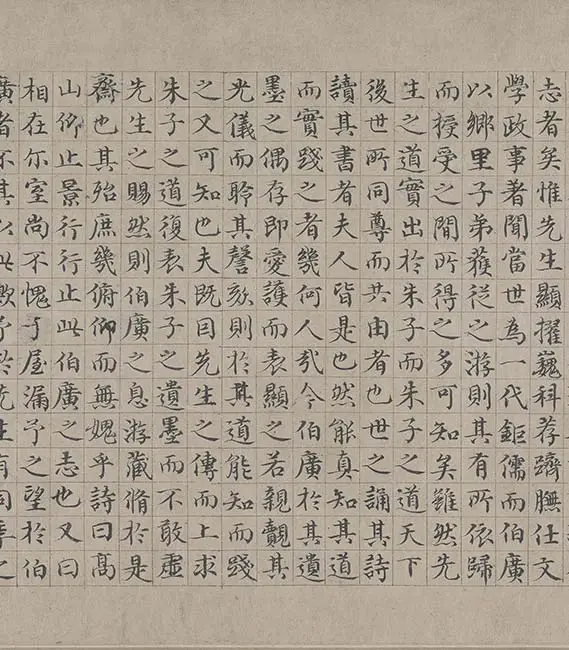 志者矣惟先生顯擢巍科荐躋膴仕文
學政事著聞當世為一代鉅儒而伯廣
以鄉里子弟獲從之游則其有所依歸
而授受之間所得之多可知矣雖然先
生之道實出於朱子而朱子之道天下
後世所同尊而共由者也世之誦其詩
讀其書者夫人皆是也然能真知其道
而實踐之者幾何人哉今伯廣於其遺
墨之偶存即愛護而表顯之若親覿其
光儀而聆其謦欬則於其道能知而踐
之又可知也夫既因先生之傳而上求
朱子之道復表朱子之遺墨而不敢虛
先生之賜然則伯廣之息游藏脩於是
齋也其殆庶幾俯仰而無媿乎詩曰高
山仰止景行行止此伯廣之志也又曰
相在尔室尚不愧于屋漏予之望於伯
廣者不其以此歟予於先生有同年之